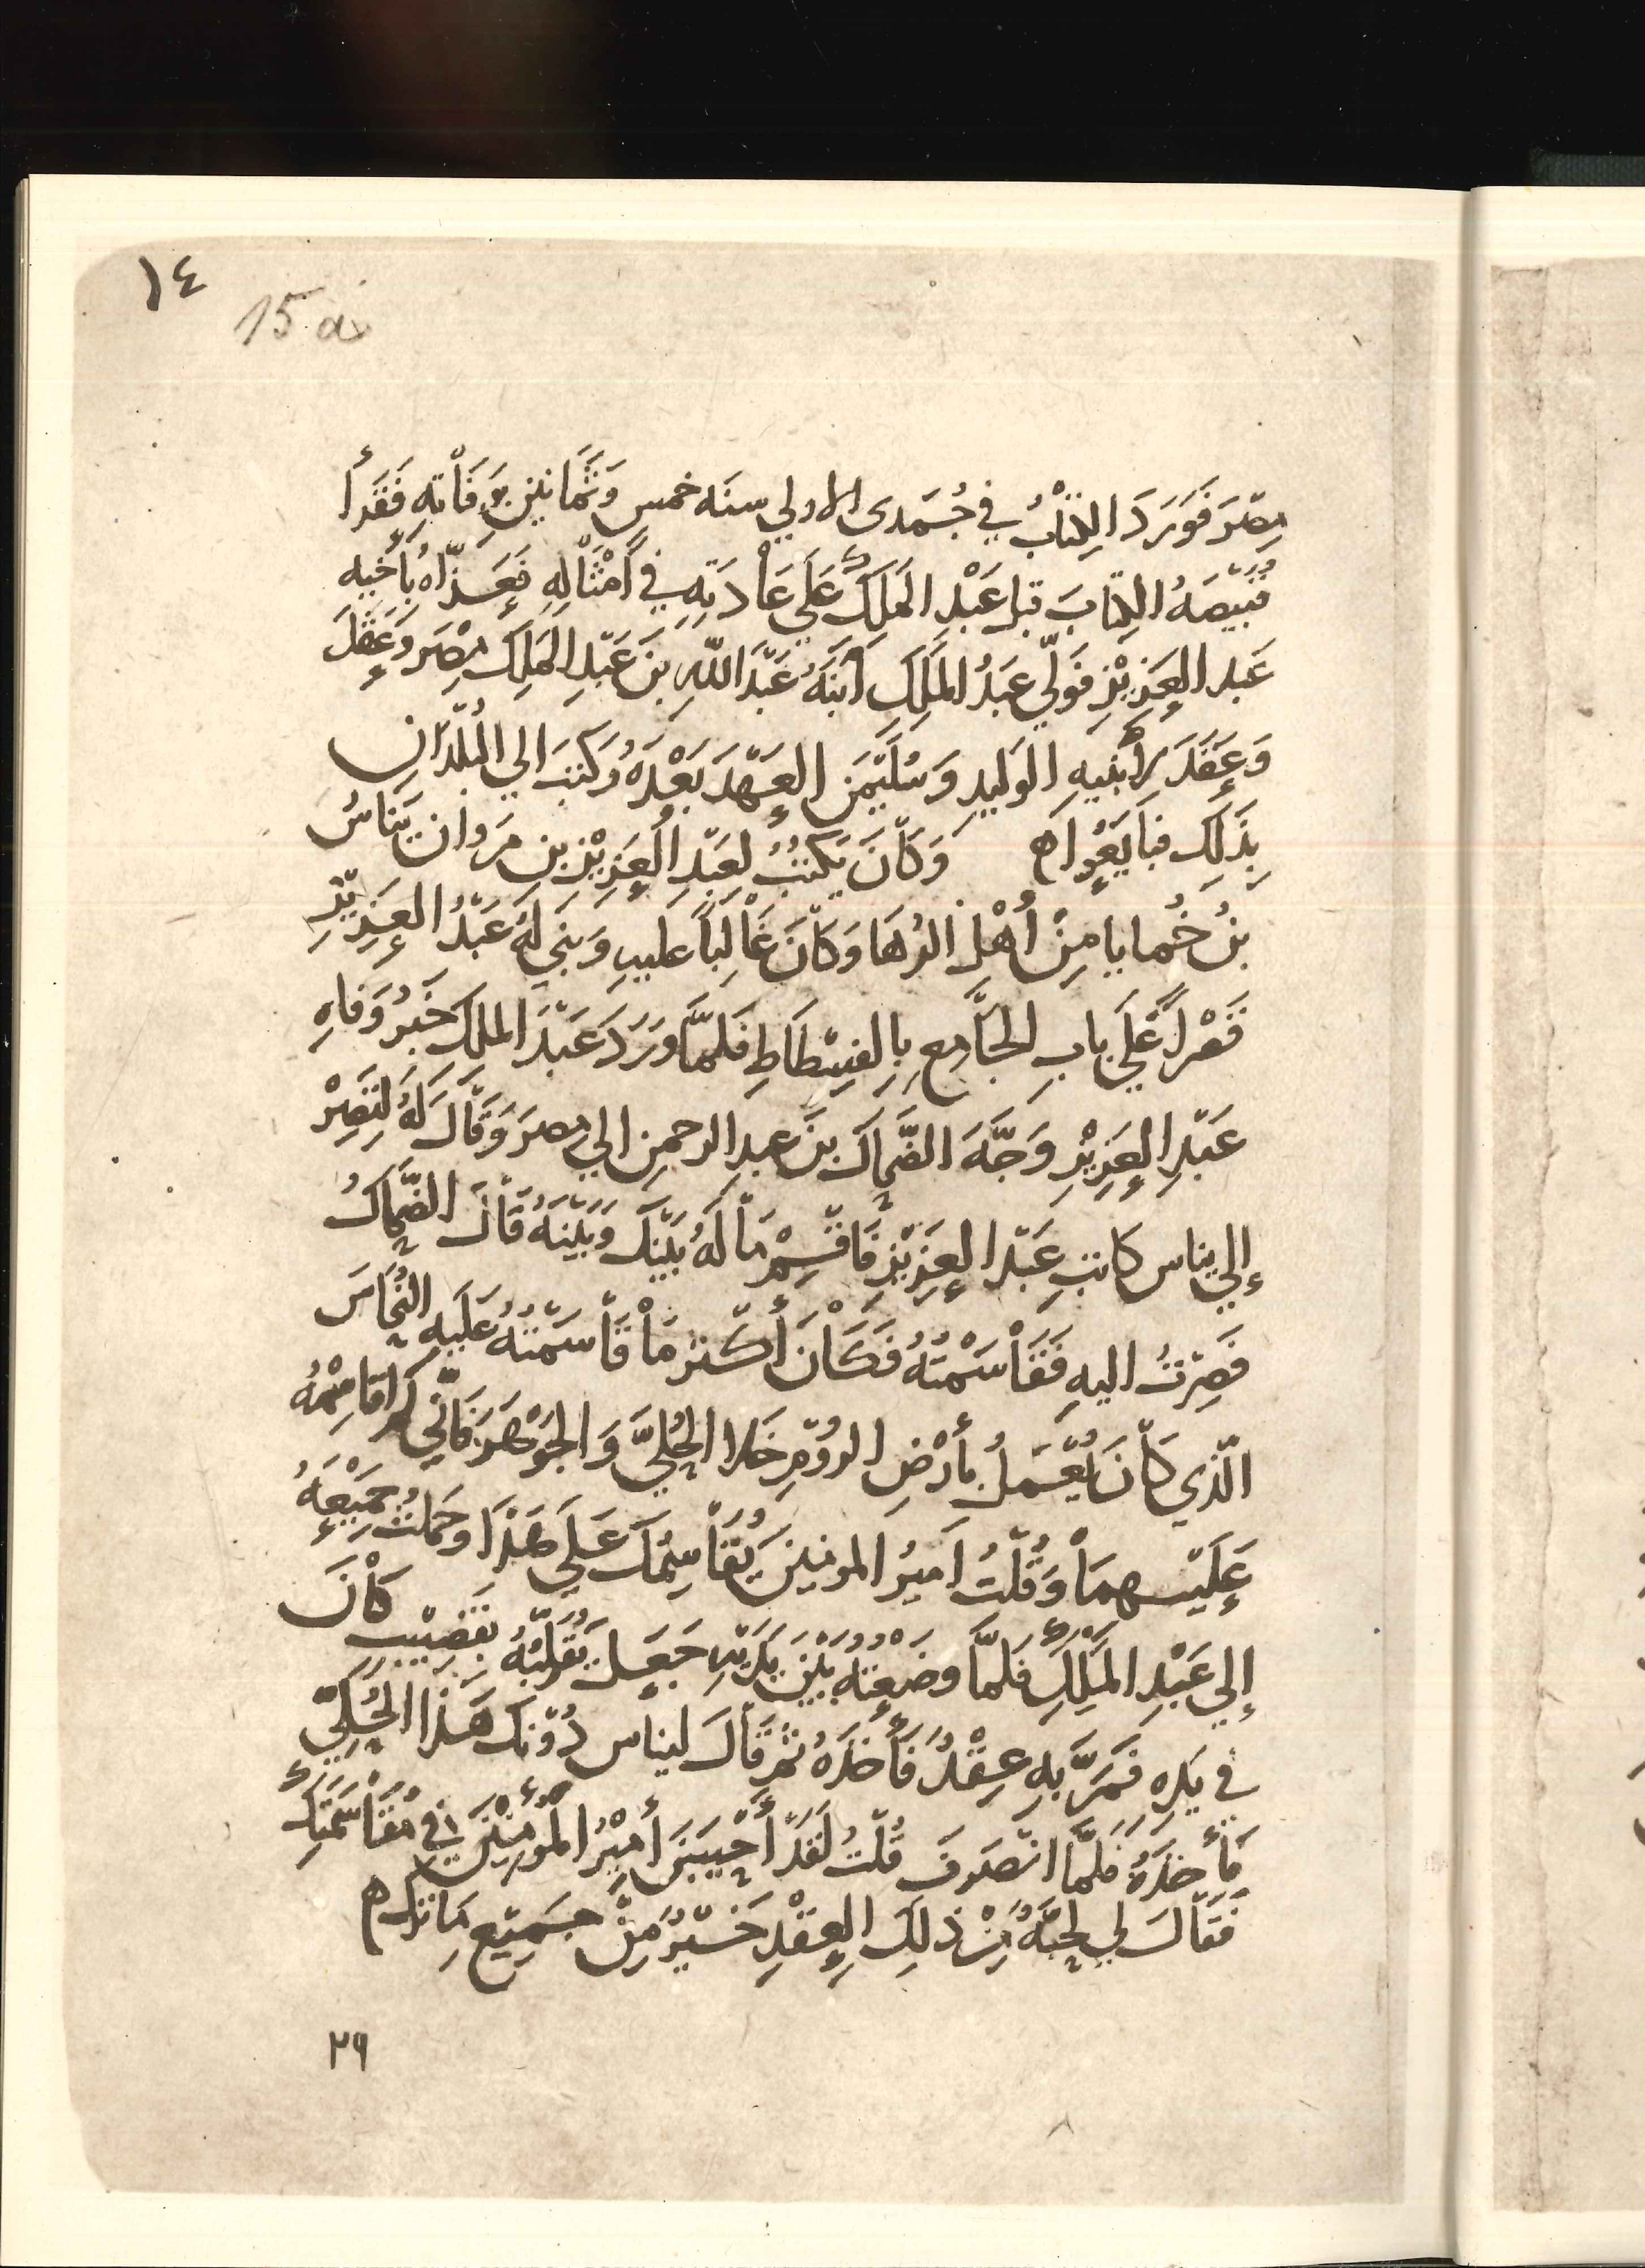 ١٤
15 a
مِصْرَ فَوَرَدَ الكِتَابُ في جُمَدى الاولي سنَه خمس وَثَمَانينَ بِوَفَاتِهِ فَقَرأ
قَبيصَهُ الكِتابَ قبل عَبْدِ المَلِكِ عَلي عَادَتِهِ في أَمْثَالِهِ فَعَزَّاهُ بِأَخيه
عَبد العَزِيْزِ فَولَّي عَبدُ المَلِكِ ابنَهُ عَبْدَ اللهِ بنَ عَبْدِ المَلِك مِصْرَ وَعَقَدَ
وَعَقَدَ لِابْنَيهِ الوَليدِ وَسُلَيْمَنَ العَهْدَ بَعْدَهُ وَكتَبَ الي البُلْدَانِ
بِذَلِك فبَايَعُوا ه وَكَانَ يَكتُبُ لِعَبْدِ العَزِيْزِ بنِ مَروان يَنَاسُ
بنُ خُمايا مِنْ أَهْلِ الرُهَا وَكَانَ غَالِبًا عَليهِ وَبَني لَهُ عَبْدُ العَزِيْزِ
قَصْرًا عَلَي بابِ الجَامِعِ بِالفِسْطَاطِ فَلَمَّا وَرَدَ عَبْدَ الملِك خَبَرُ وَفاهِ
عَبْدِ العَزِيْزِ وَجَّهَ الضَّحاكَ بنَ عبدِ الرحمنِ الي مِصرَ وَقَالَ لَهُ لِتَصِرْ
إلي يناس كاتبِ عَبْدِ العَزِيْزِ فَاقْسِمْ مَالَهُ بَيْنَكَ وَبَيْنَهُ قَالَ الضَّحاكُ
فَصِرْتُ اليهِ فَقَاسَمْتُهُ فَكَانَ أَكثر مَا قَاسَمْتُهُ عَلَيهِ النُحَاسَ
الّذي كَانَ يُعْمَلُ بأَرْضِ الرُوْمِ خَلا الحُليَّ وَالجَوْهَرَ فَاني لم اقاسِمْهُ
عَلَيْهمَا وَقُلْتُ امَيرُ المومنينَ يُقَاسِمُكَ عَلَي هَذَا وحَمَلتُ جَمِيْعَهُ
إلي عَبْدِ المَلِكِ فَلَمَّا وضَعتُهُ بَيْنَ يَدَيْهِ جَعَلَ يُقَلِّبُهُ بِقَضِيْبٍ كَانَ
في يَدِهِ فَمَرَّ بِهِ عِقْدٌ فَأَخَذَهُ ثم قَالَ ليناس دُوْنَكَ هَذَا الحُليّ
فَأَخَذَهُ فلمَّا انْصَرفَ قُلْتُ لَقَدْ أَحْبَبَنَ أَمِيْرُ المُؤمِنينَ في مُقَاسَمَتِكَ
فَقَالَ لي لحَبَّهُ مِنْ ذلِكَ العِقْدِ خَيْرٌ مِنْ جَمِيْعِ مَا ترك ه
٢٩